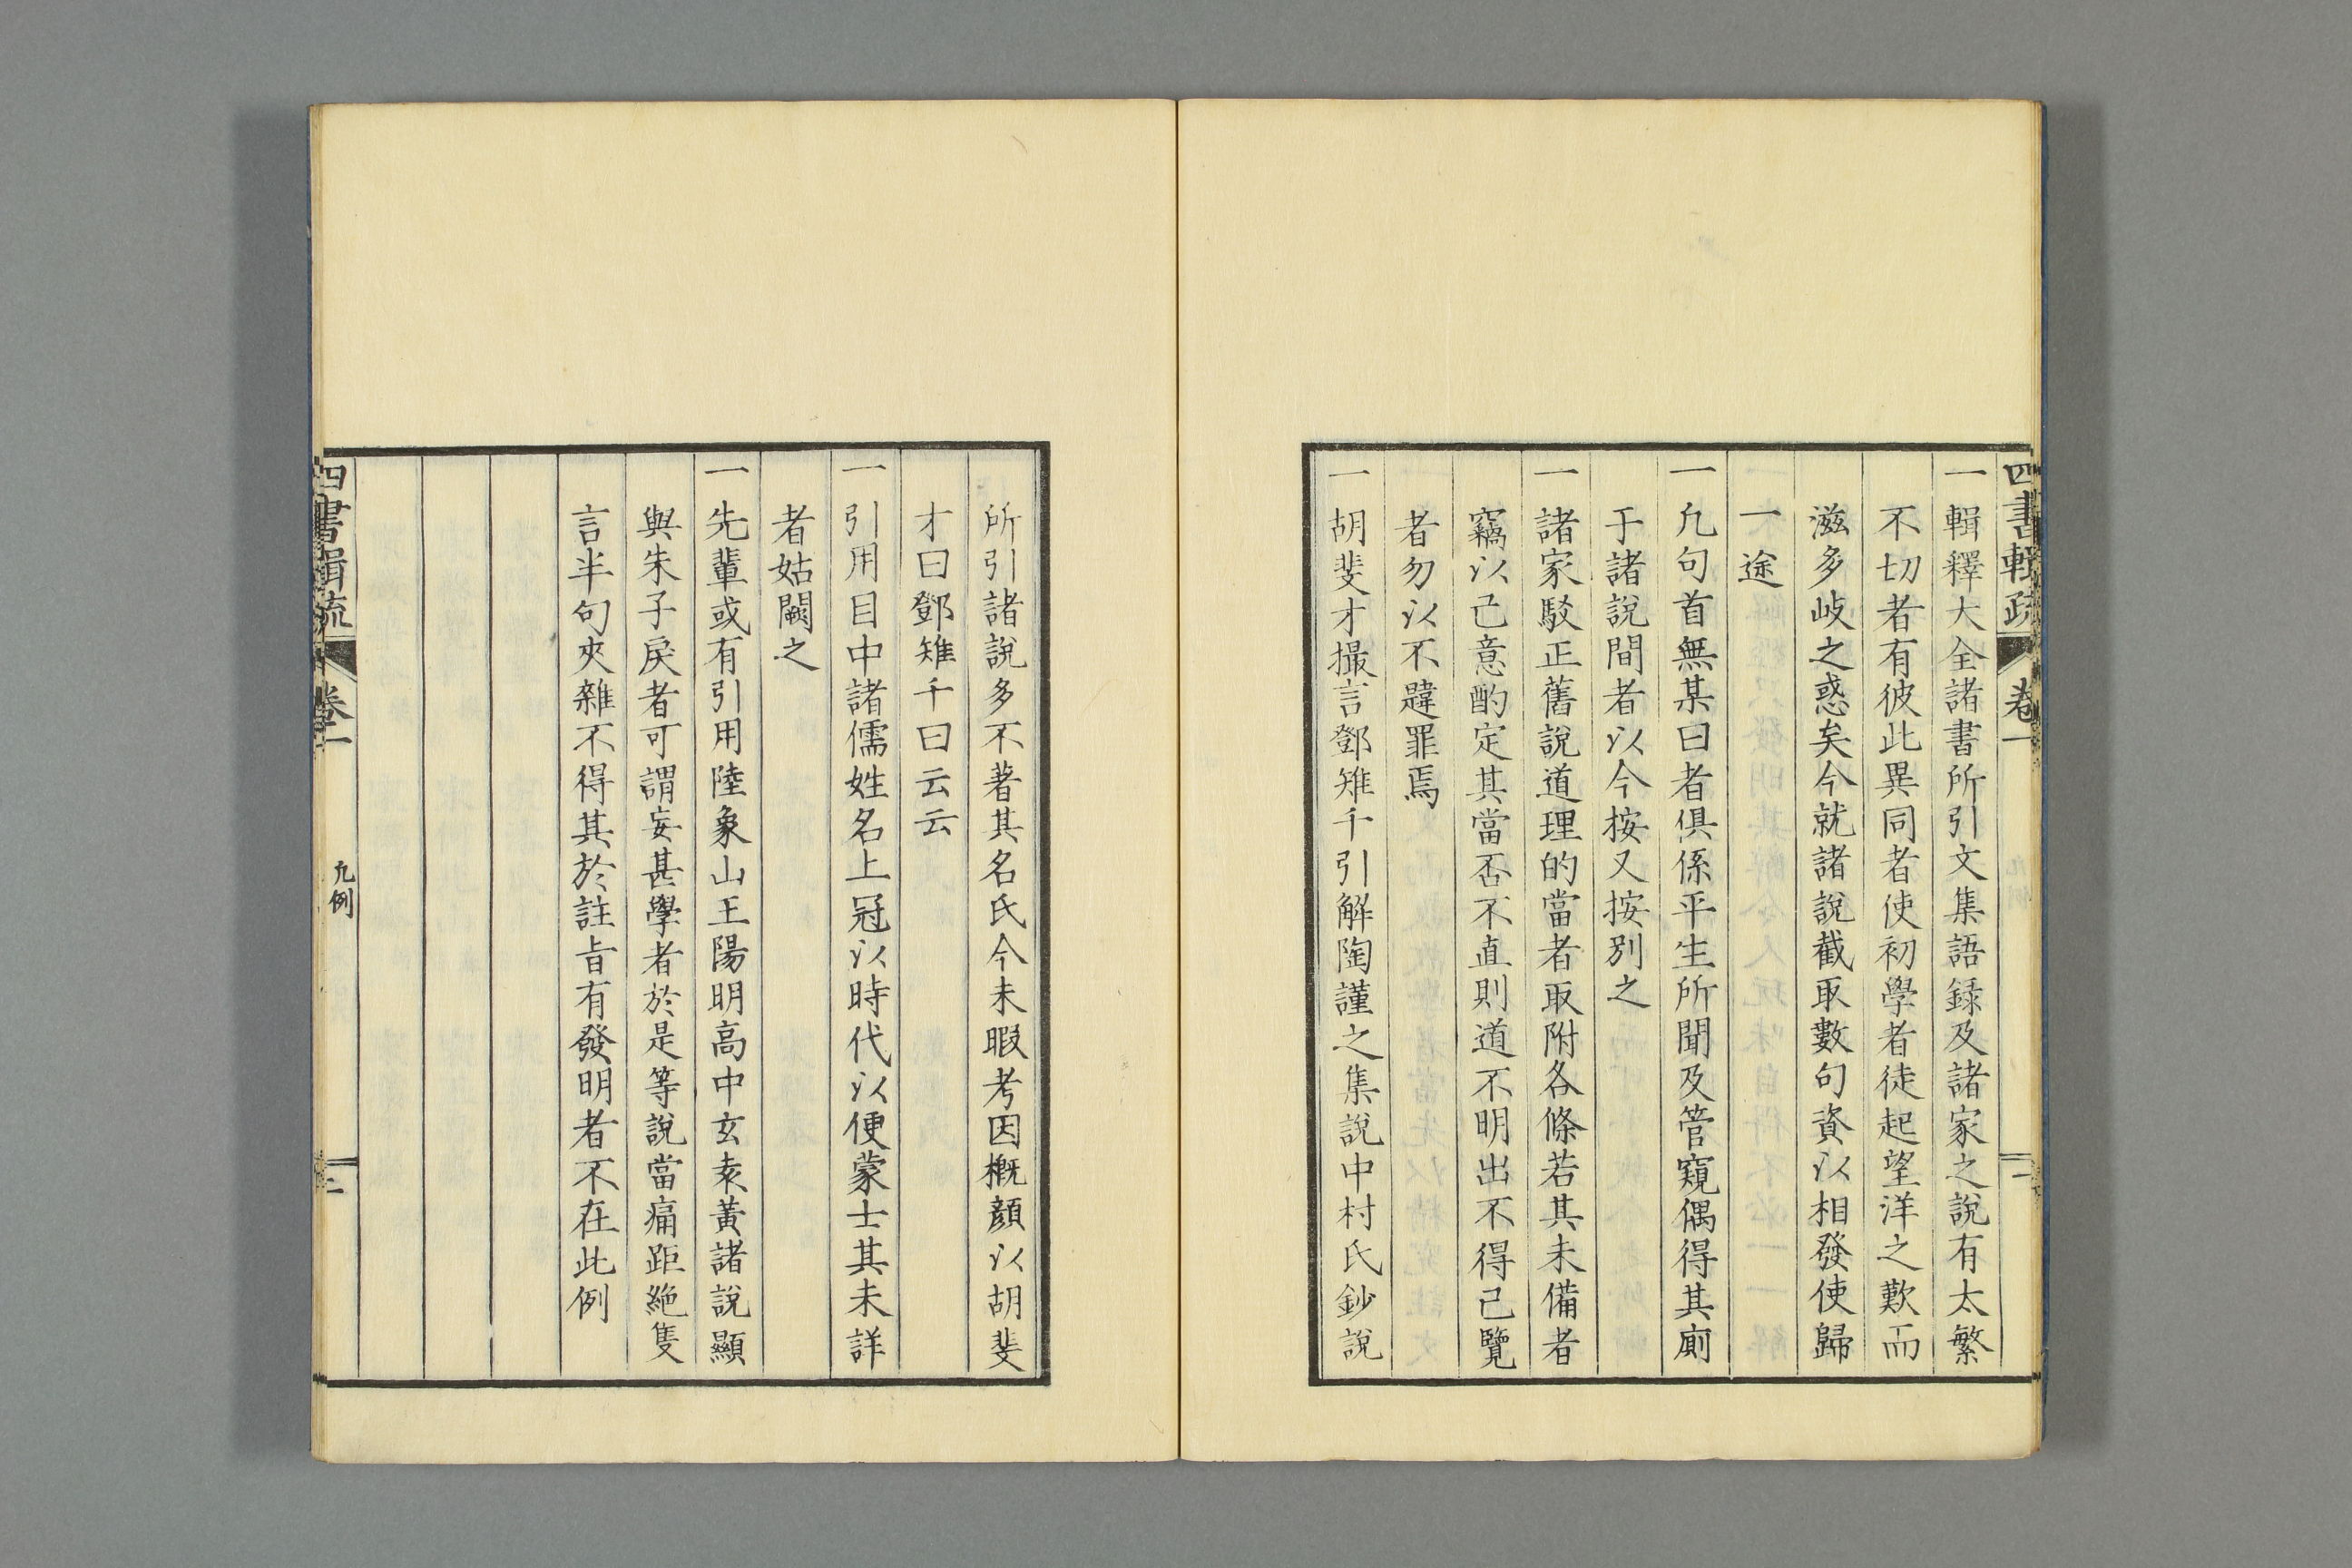 四書輯疏
卷一
二
一輯釋大全諸書所引文集語録及諸家之說有太繁
不切者有彼此異同者使初學者徒起望洋之歎而
滋多岐之惑矣今就諸說截取數句資以相發使歸
一途
一凢句首無某曰者俱係平生所聞及管窺偶得其廁
于諸說間者以今按又按別之
一諸家駁正舊說道理的當者取附各條若其未備者
竊以己意酌定其當否不直則道不明出不得已覽
者勿以不韙罪焉
一胡斐才撮言鄧雉千引解陶謹之集說中村氏鈔說
所引諸說多不著其名氏今未暇考因概顔以胡斐
才曰鄧雉千曰云云
一引用目中諸儒姓名上冠以時代以便蒙士其未詳
者姑闕之
一先輩或有引用陸象山王陽明高中玄袁黃諸說顯
與朱子戾者可謂妄甚學者於是等說當痛距絶隻
言半句夾雜不得其於註旨有發明者不在此例
四書輯疏
卷一
凢例
二